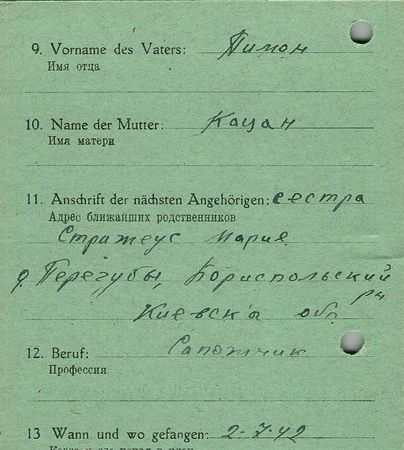 9. Vorname des Vaters: Пимон
Имя отца
10. Name der Mutter: Коцан
Имя матери
11. Anschrift der nächsten Angehörigen: сестра
Адрес ближайших родственников
Стратеус Марие
д. Перегубы, Бориспольский
рн
Киевск'а обл
12. Beruf: Сапожник
Профессия
13 Wann und wo gefangen: 2-7-42